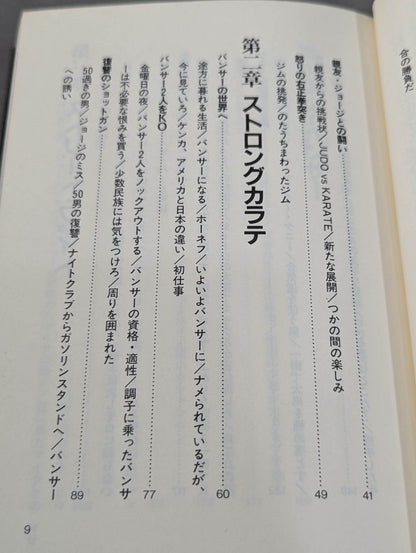 命の勝負だ
親友・ジョージとの闘い
親友からの挑戦状/JUDO vs KARATE/新たな展開/つかの間の楽しみ 41
怒りの右正拳突き
ジムの挑発/のたうちまわったジム 49
第二章 ストロングカラテ
バンサーの世界へ
途方に暮れる生活/バンサーになる/ホーネフ/いよいよバンサーに/ナメられているだが、
今に見ていろ/ケンカ、アメリカと日本の違い/初仕事 60
バンサー2人をKO
金曜日の夜/バンサー2人をノックアウトする/バンサーの資格・適性/調子に乗ったバンサ
ーは不必要な恨みを買う/少数民族には気をつけろ/周りを囲まれた 77
復讐のショットガン
50過ぎの男/ジョージのミス/50男の復讐/ナイトクラブからガソリンスタンドへ/バンサー
への誘い 89
9